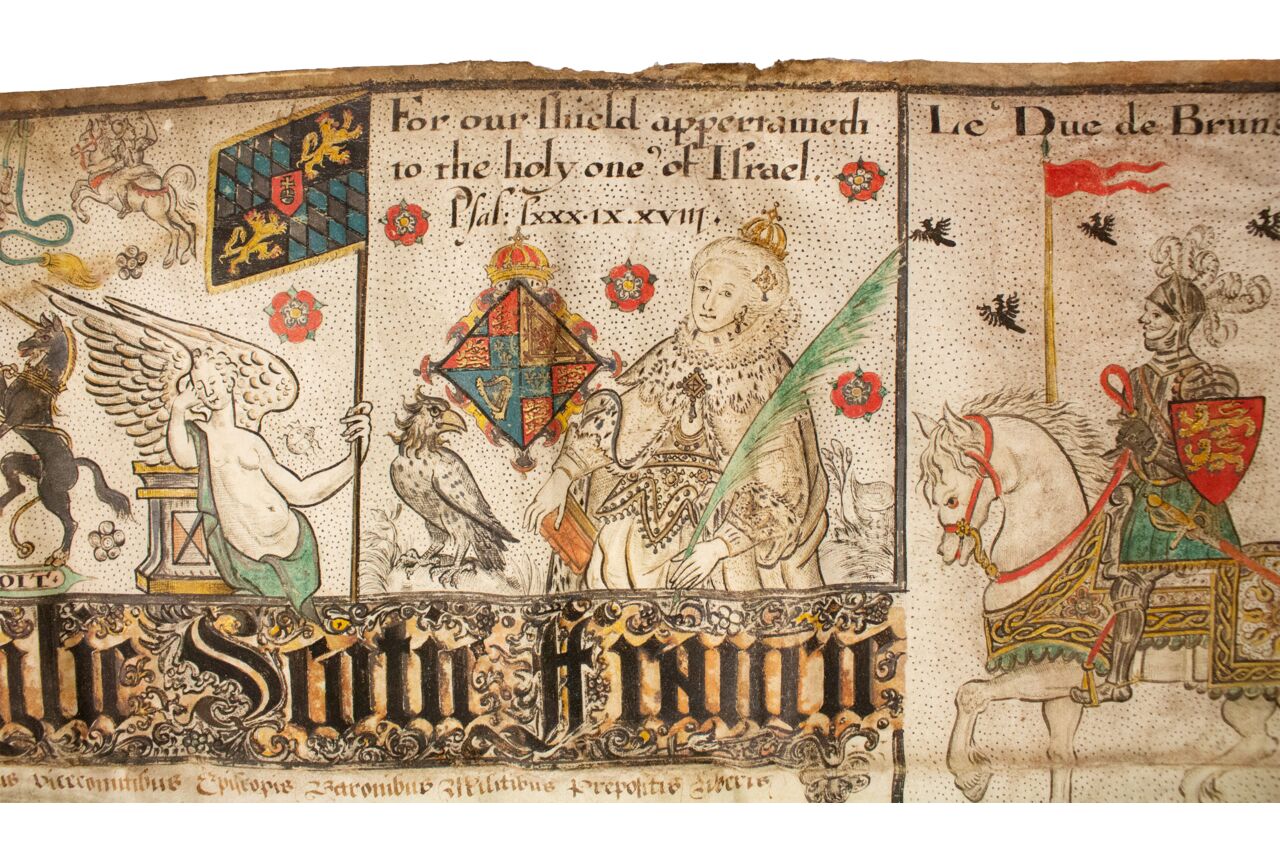 For our ſhield appertaineth
to the holy one of Iſrael.
Pſal: lxxx·ix.xviij.
Le Duc de Bruns
OIT·
Scotie Francie
Vicecomitibus Epiſcopis Baronibus Militibus Prepoſitis